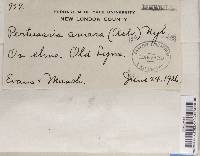 939.
HERBARIUM OF YALE UNIVERSITY
NEW LONDON COUNTY
Pertusaria amara (Ach.) Nyl.
On elms. Old Lyme.
Evans & Musch.
June 24, 1926